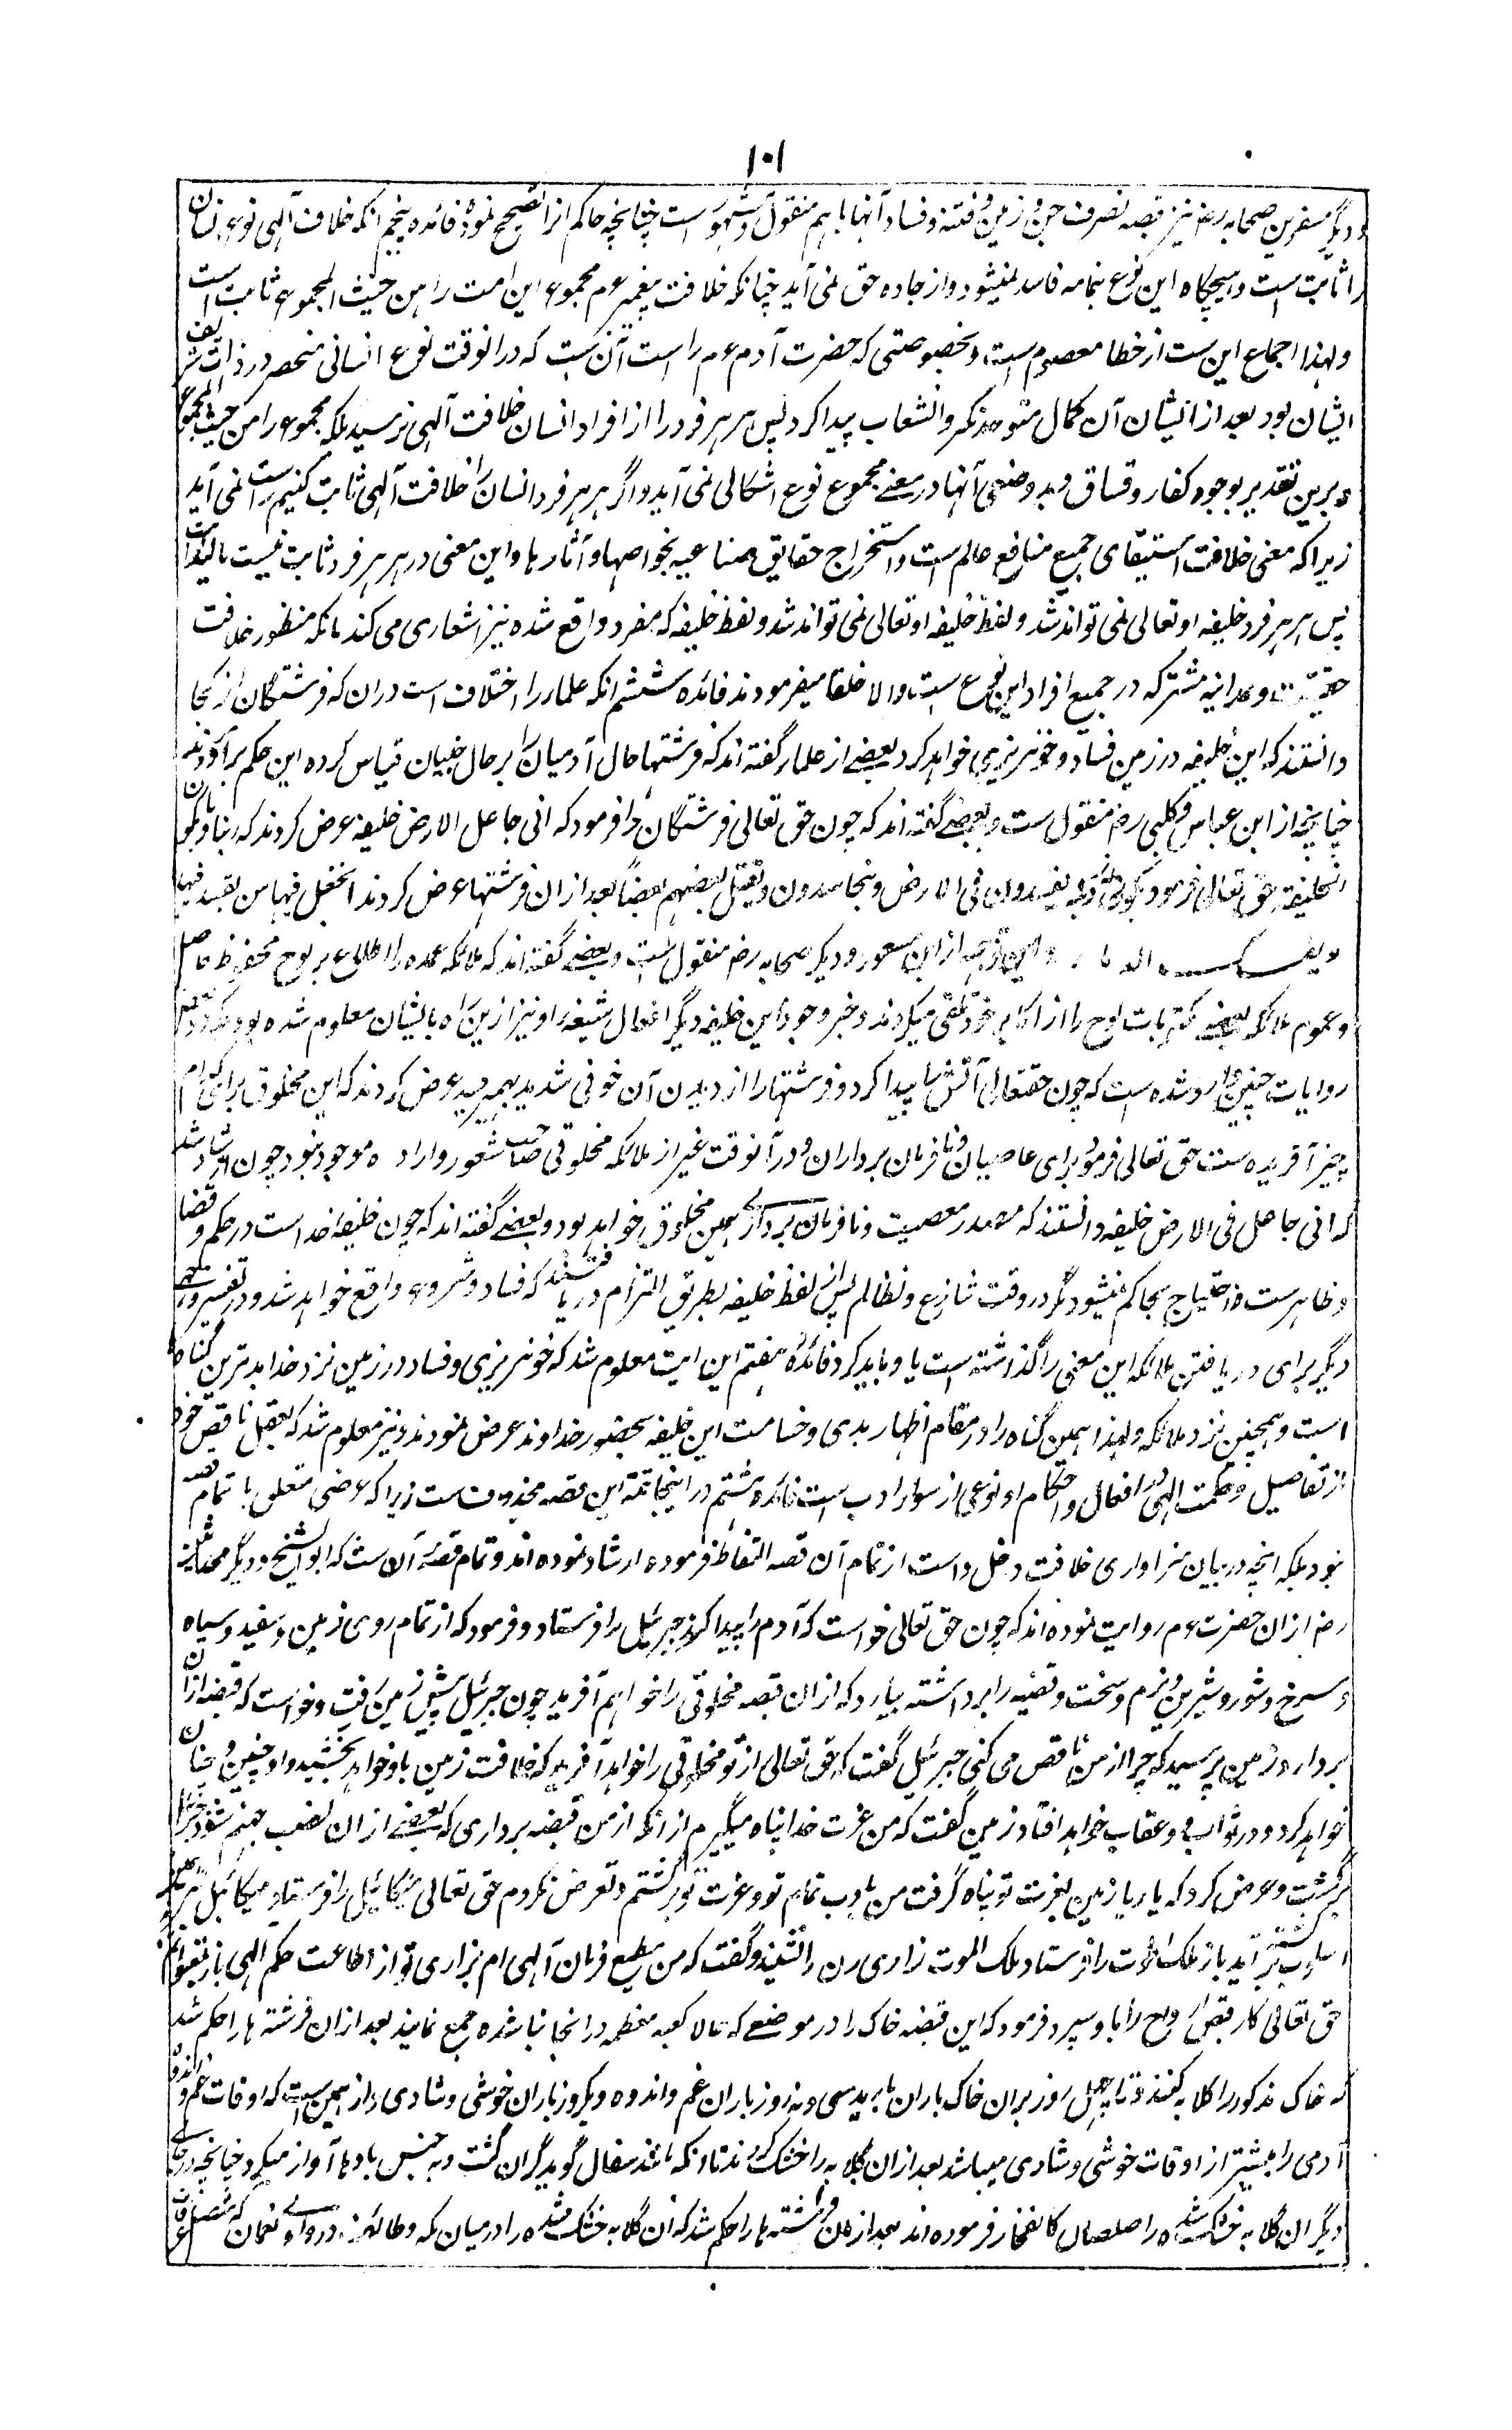 ۱۰۱
و دیگر مفسرین صحابه رض نیز قصه تصرف جن در زمین و فتنه و فساد آنها باهم منقول و مشهور است چنانچه حاکم از انها تصحیح نموده فائده پنجم آنکه خلافت آلهی نوع انسان
را ثابت است و هیچگاه این نوع بتمامه فاسد نمیشود و از جاده حق نمی آید چنانکه خلافت پیغمبر عم مجموع این امت را من حیث المجموع ثابت است
و لهذا اجماع این ست از خطا معصوم است و خصوصیتی که حضرت آدم عم را است آن ست که در انوقت نوع انسانی منحصر در ذات شریف
ایشان بود بعد از ایشان آن کمال متوحد تکثر و انشعاب پیدا کرد پس هر هر فرد را از افراد انسان خلافت آلهی نرسید بلکه مجموع را من حیث المجموع
و برین تقدیر بوجود کفار و فساق و بد وضعی آنها در معنی مجموع نوع اشکالی نمی آید و اگر هر هر فرد انسان را خلافت آلهی ثابت کنیم راست نمی آید
زیرا که معنی خلافت استیفای جمیع منافع عالم است و استخراج حقایق صناعیه بخواصها و آثارها و این معنی در هر هر فرد ثابت نیست بالبداهت
پس هر هر فرد خلیفه او تعالی نمی تواند شد و لفظ خلیفه او تعالی نمی تواند شد و لفظ خلیفه که مفرد واقع شده نیز اشعاری می کند بآنکه منظور خلافت
حقیقت وحدانیه مشترکه در جمیع افراد این نوع ست و الا خلفا میفرمودند فائده ششم آنکه علما را اختلاف است دران که فرشتگان از کجا
دانستند که این خلیفه در زمین فساد و خونریزی خواهد کرد بعضے از علما گفته اند که فرشتها حال آدمیان را بر حال جنیان قیاس کرده این حکم بر آوردند
چنانچه از ابن عباس و کلبی رض منقول ست و بعضے گفته اند که چون حق تعالی فرشتگان را فرمود که انی جاعل الارض خلیفه عرض کردند که ربنا و یکون
الخلیفه حق تعالی فرمود یکون له ذریة یفسدون فی الارض و یتحاسدون و یقتل بعضهم بعضا بعد ازان فرشتها عرض کردند اتجعل فیها من یفسد فیها
و یسفک الدماء و این توجیه از ابن مسعود و دیگر صحابه رض منقول است و بعضے گفته اند که ملائکه عمده را اطلاع بر لوح محفوظ حاصل
و عموم ملائکه بعضے مکتوبات لوح را از اکابر خود تلقی میکردند و خبر وجود این خلیفه و دیگر افعال شنیعه او نیز ازین راه بایشان معلوم شده بود
روایات چنین وارد شده است که چون حقتعالی آتش را پیدا کرد و فرشتها را از دیدن آن خوفی شدید بهم رسید عرض کردند که این مخلوق برای کدام
چیز آفریده ست حق تعالی فرمود برای عاصیان و نافرمان برداران و در آنوقت غیر از ملائکه مخلوقی صاحب شعور و اراده موجود نبود چون ارشاد شد
که انی جاعل فی الارض خلیفه دانستند که مصدر معصیت و نافرمان برداری همین مخلوق خواهد بود و بعضے گفته اند که چون خلیفه خدا است در حکم و قضا
و ظاهر ست که احتیاج بحاکم نمیشود مگر در وقت تنازع و تظالم پس از لفظ خلیفه بطریق التزام دریافتند که فساد و شر واقع خواهد شد و در تفسیر وجه
دیگر برای دریافتن ملائکه این معنی را گذاشته است یاد باید کرد فائدهٔ هفتم این ایت معلوم شد که خونریزی و فساد در زمین نزد خدا بدترین گناه
است و همچنین نزد ملائکه و لهذا همین گناه را در مقام اظهار بدی و خساست این خلیفه بحضور خداوند عرض نمودند و نیز معلوم شد که بعقل ناقص خود
از تفاصیل حکمت الهی در افعال و احکام او نوعی از سوء ادب است فائده هشتم در اینجا تتمه این قصه محذوف ست زیرا که غرضی متعلق با تمام قصه
نبود بلکه انچه در بیان سزاواری خلافت دخل داست از تمام آن قصه التقاط فرموده ارشاد نموده اند و تمام قصه آن ست که ابو الشیخ و دیگر محدثان
رض ازان حضرت عم روایت نموده اند که چون حق تعالی خواست که آدم را پیدا کند جبرئیل را فرستاد و فرمود که از تمام روی زمین و سفید و سیاه
و سرخ و شور و شیرین و نرم و سخت قبضه را برداشته بیارد که ازان قبضه مخلوقی را خواهم آفرید چون جبرئیل پیش زمین رفت و خواست که قبضه ازان
بردارد زمین پرسید که چرا از من ناقص می کنی جبرئیل گفت که حق تعالی از تو مخلوقی را خواهد آفرید که خلافت زمین باو خواهد بخشید و او چنین و چنان
خواهد کرد و در ثواب و عقاب خواهد افتاد زمین گفت که من بعزت خدا پناه میگیرم از آنکه از من قبضه برداری که بعضے ازان نصیب جهنم شود
برگشت و عرض کرد که یا رب زمین بعزت تو پناه گرفت من بادب نام تو و عزت تو برگشتم و تعرض نکردم حق تعالی میکائیل را فرستاد میکائیل نیز بهمین
اسلوب برگشته آمد باز ملک الموت را فرستاد ملک الموت زاری زمین را نشنید و گفت که من مطیع فرمان آلهی ام بزاری تو از اطاعت حکم الهی باز نمیتوانم
حق تعالی کار قبض ارواح را باو سپرد و فرمود که این قبضه خاک را در موضعے که حالا کعبه معظمه در انجا بنا شده جمع نمایند بعد ازان فرشته ها را حکم شد
که خاک مذکور را گلابه کنند و تا چهل روز بران خاک باران بارید سی و نه روز باران غم و اندوه و یکروز باران خوشی و شادی و از همین ست که اوقات غم و اندوه
آدمی را بیشتر از اوقات خوشی و شادی میباشد بعد ازان گلابه را خشک کردند تا انکه مانند سفال گویدگران گشت و به جنبش بادها آواز میکرد چنانچه در جای
دیگر ان گلابه خشک شده را صلصال کالفخار فرموده اند بعد ازان فرشته ها را حکم شد که ان گلابه خشک شده را در میان مکه و طائف در وادی نعمان که متصل عرفات